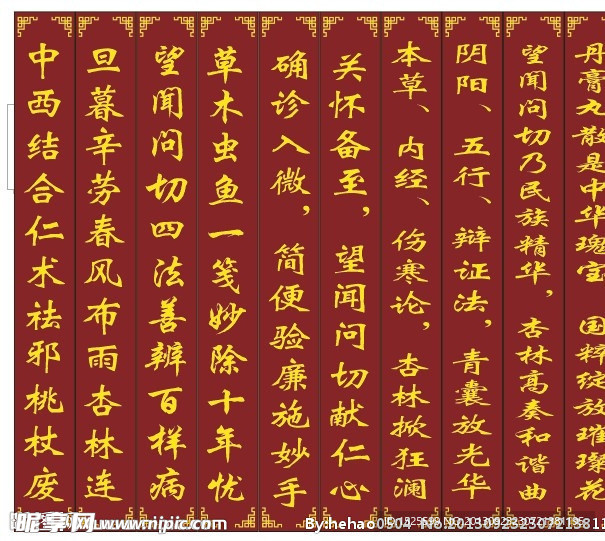 中西结合仁术祛邪桃杖废
旦暮辛劳春风布雨杏林连
望闻问切四法善辨百样病
草木虫鱼一笺妙除十年忧
确诊入微，简便验廉施妙手
关怀备至，望闻问切献仁心
本草、内经、伤寒论，杏林掀狂澜
阴阳、五行、辩证法，青囊放光华
望闻问切乃民族精华，杏林高奏和谐曲
丹膏九散是中华瑰宝 国粹绽放璀璨花
昵享网 www.nipic.com
By:hehao0504